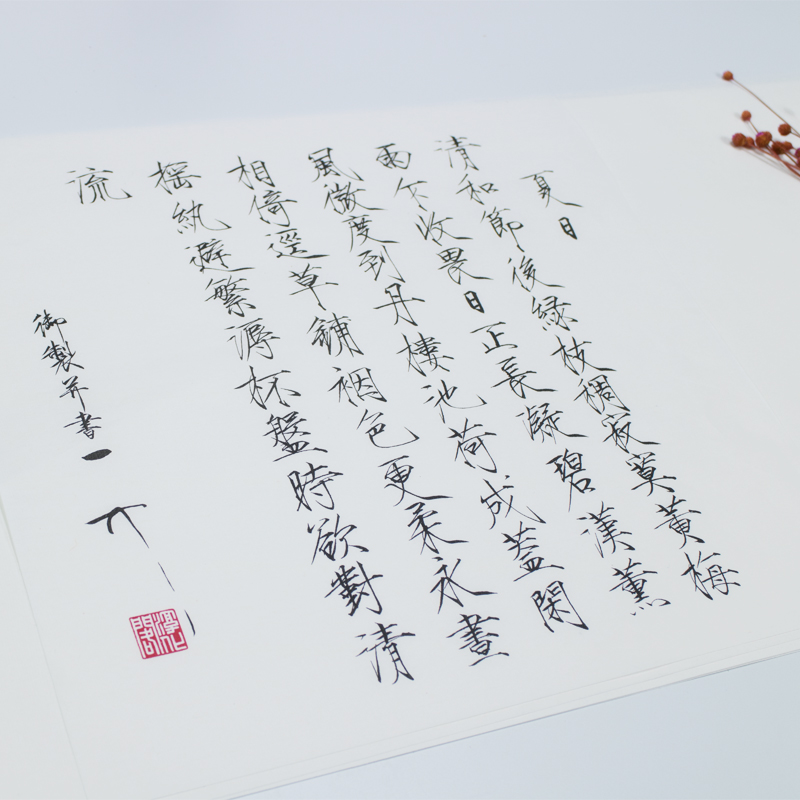 夏日
清和節後綠枝稠寂寞黃梅
雨乍收畏日正長凝碧漢薰
風微度到丹樓池荷成蓋閑
相倚逕草鋪裀色更柔永晝
搖紈避繁溽杯盤時欲對清
流
御製并書